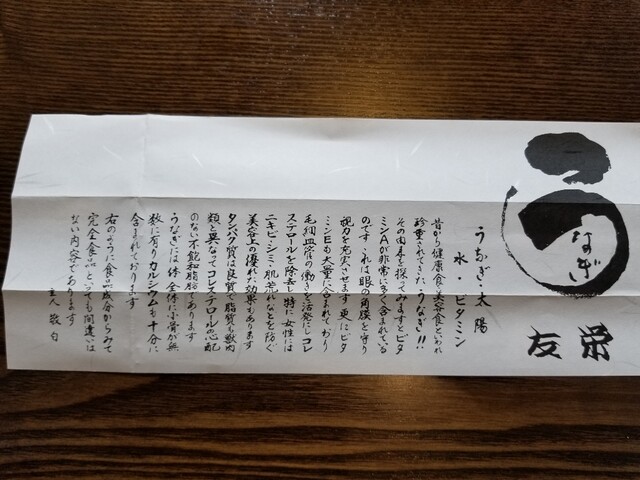 うなぎ
栄友
うなぎ・太陽
水・ビタミン
昔から健康食・美容食といわれ
珍重されてきた、うなぎ!!
その由来を探ってみますとビタ
ミンAが非常に多く含まれている
のです。これは眼の角膜を守り
視力を充実させます 更にビタ
ミンEも大量に含まれており
毛細血管の働きを活発にしコレ
ステロールを除去し 特に女性には
ニキビ・シミ・肌荒れなどを防ぐ
美容上の優れた効果もあります
タンパク質は良質で脂質も獣肉
類と異なってコレステロールの心配
のない不飽和脂肪であります
うなぎには体全体に小骨が無
数に有りカルシウムも十分に
含まれております
右のように食品成分からみて
完全食品といっても間違いは
ない内容であります
主人 敬白